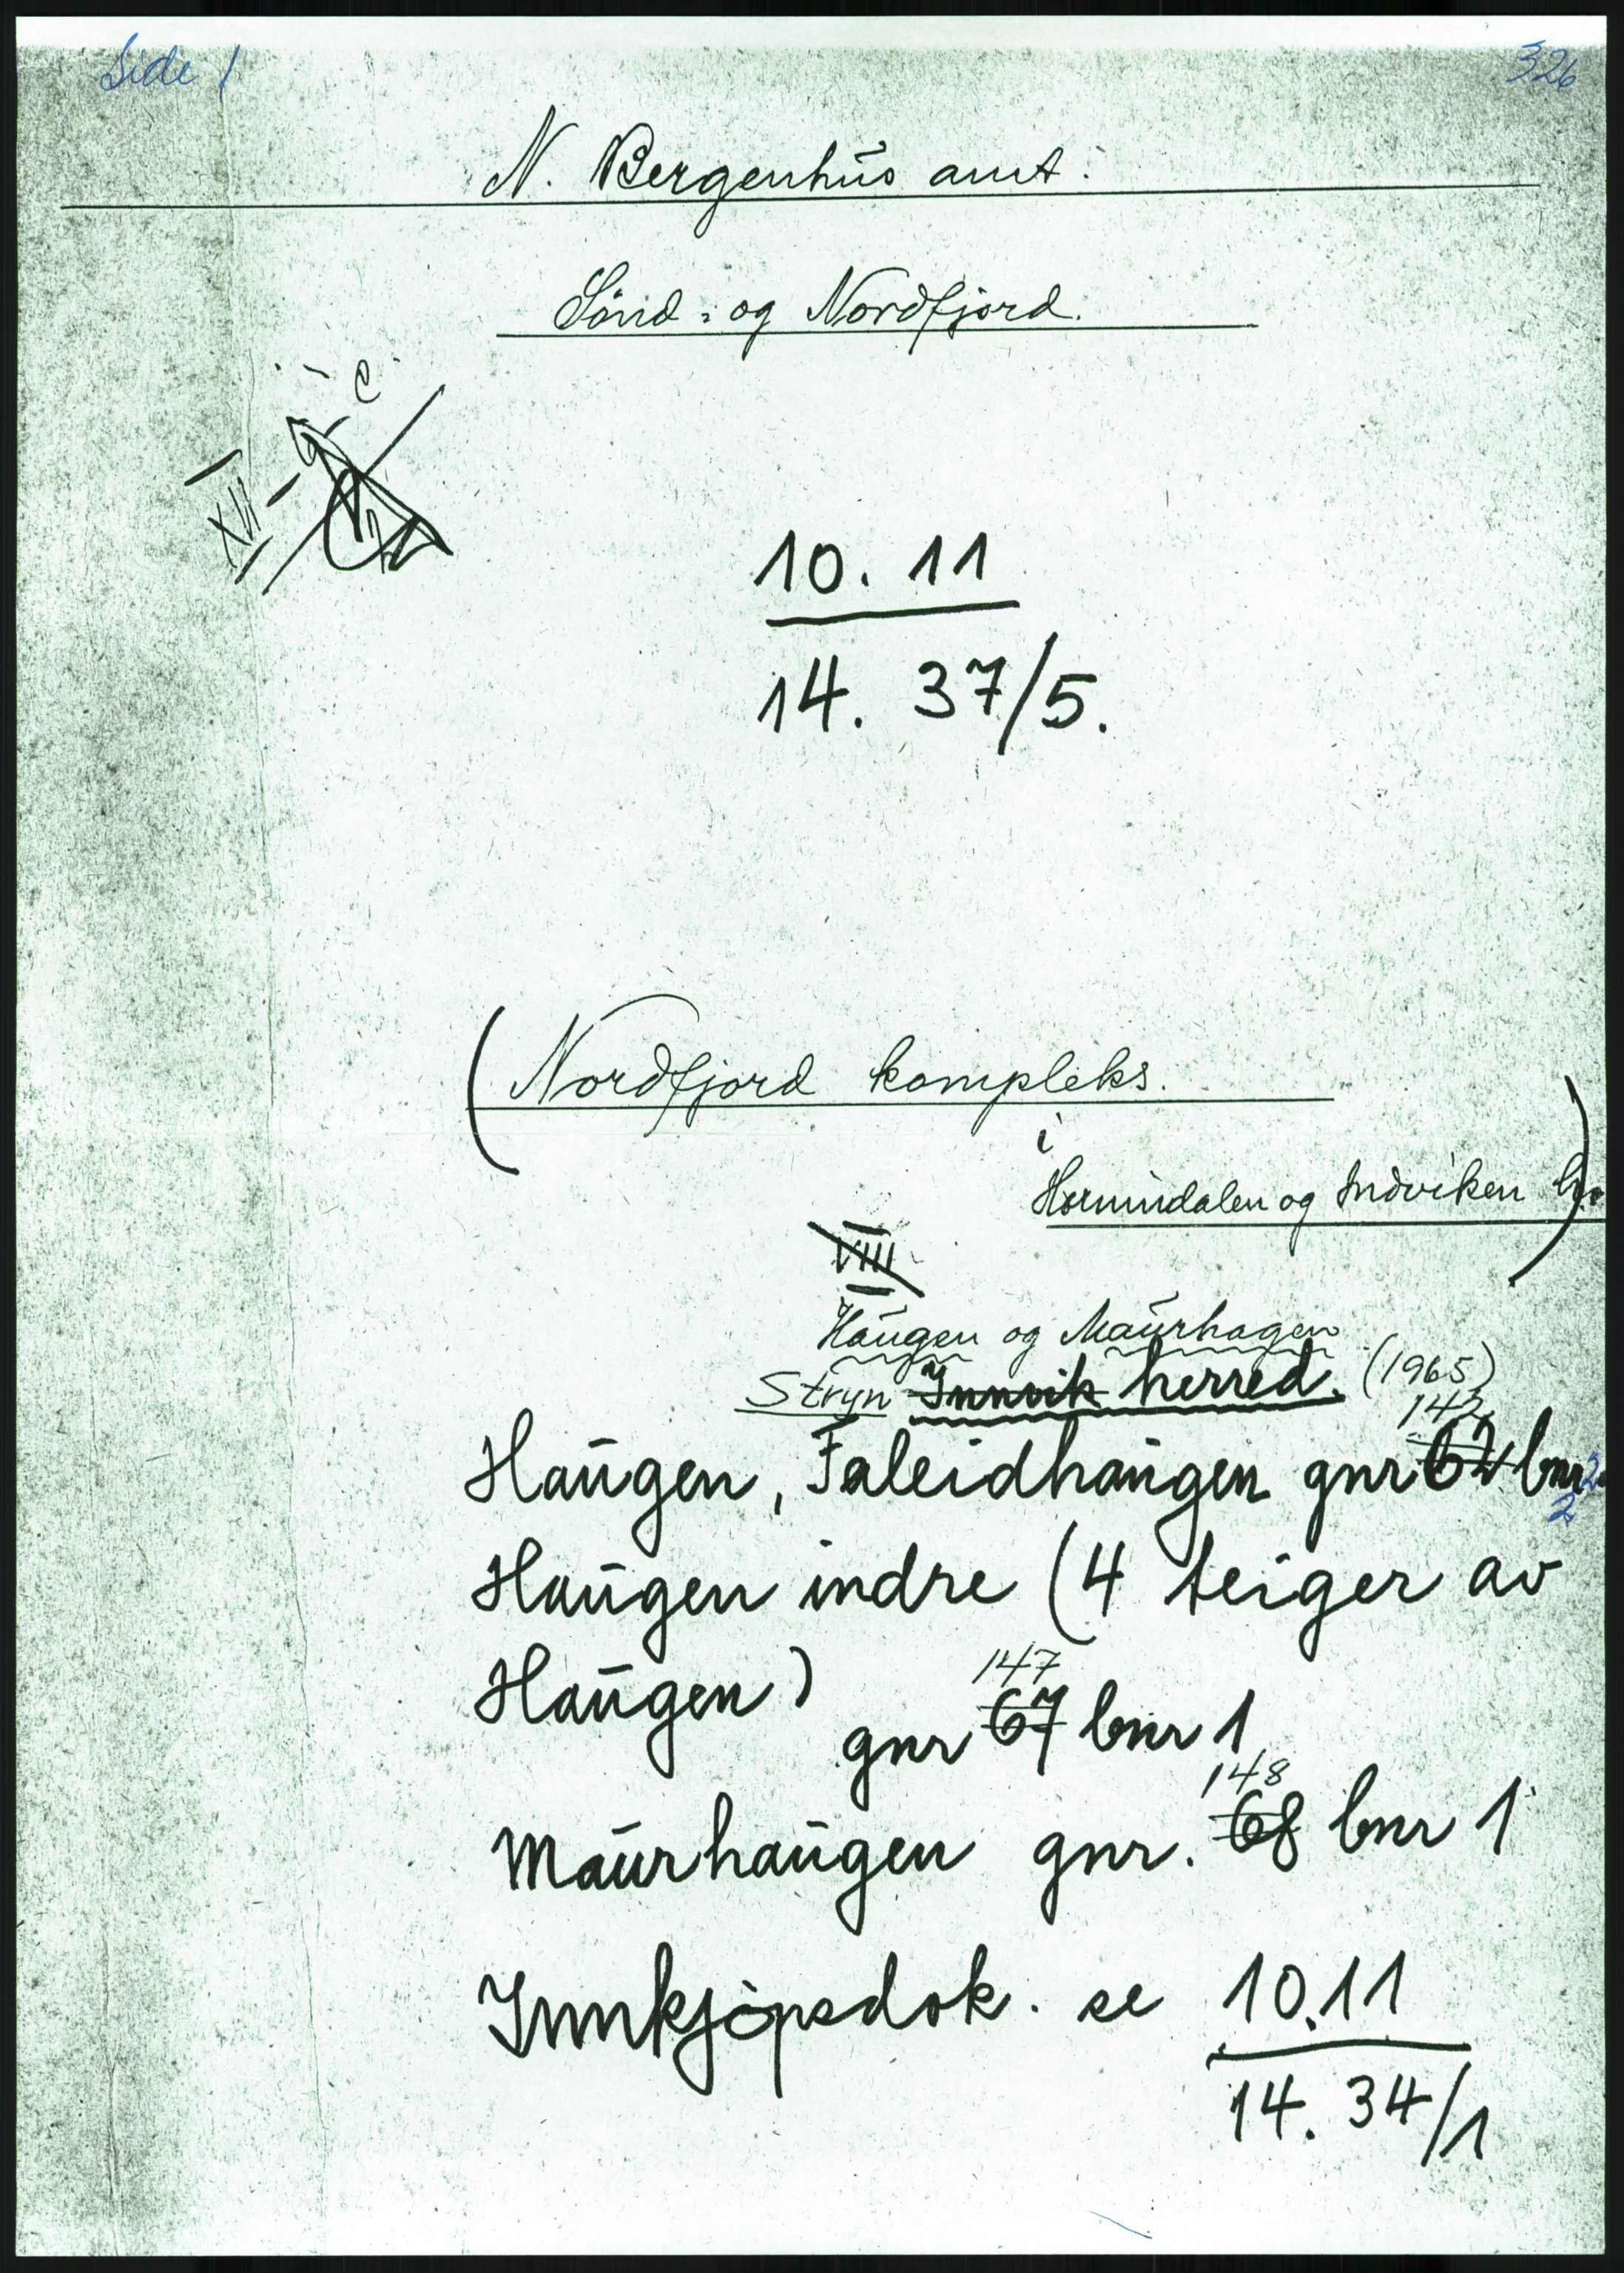 Side 1
326
N. Bergenhus amt.
Sönd- og Nordfjord.
C
XII
10. 11
14. 37/5.
(Nordfjord kompleks.
i
Hornindalen og Indviken h.)
VIII
Haugen og Maurhagen
Stryn Innvik herred. (1965)
142
Haugen, Faleidhaugen gnr 62 bnr 2
2
Haugen indre (4 teiger av
Haugen)
147
gnr 67 bnr 1
148
Maurhaugen gnr. 68 bnr 1
Innkjöpsdok. se 10.11
14. 34/1